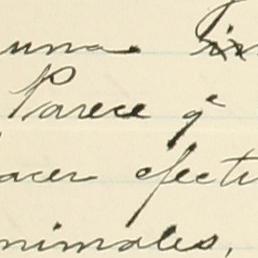 una
Parece q̄
acer efecti
nimales,